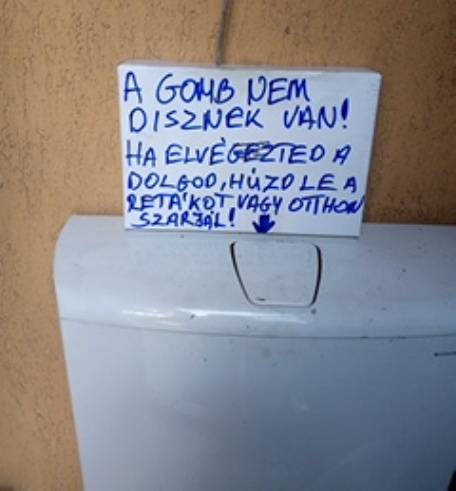 A GOMB NEM
DISZNEK VAN!
HA ELVÉGEZTED A
DOLGOD, HÚZD LE A
RETÁKOT VAGY OTTHON
SZARJÁL!